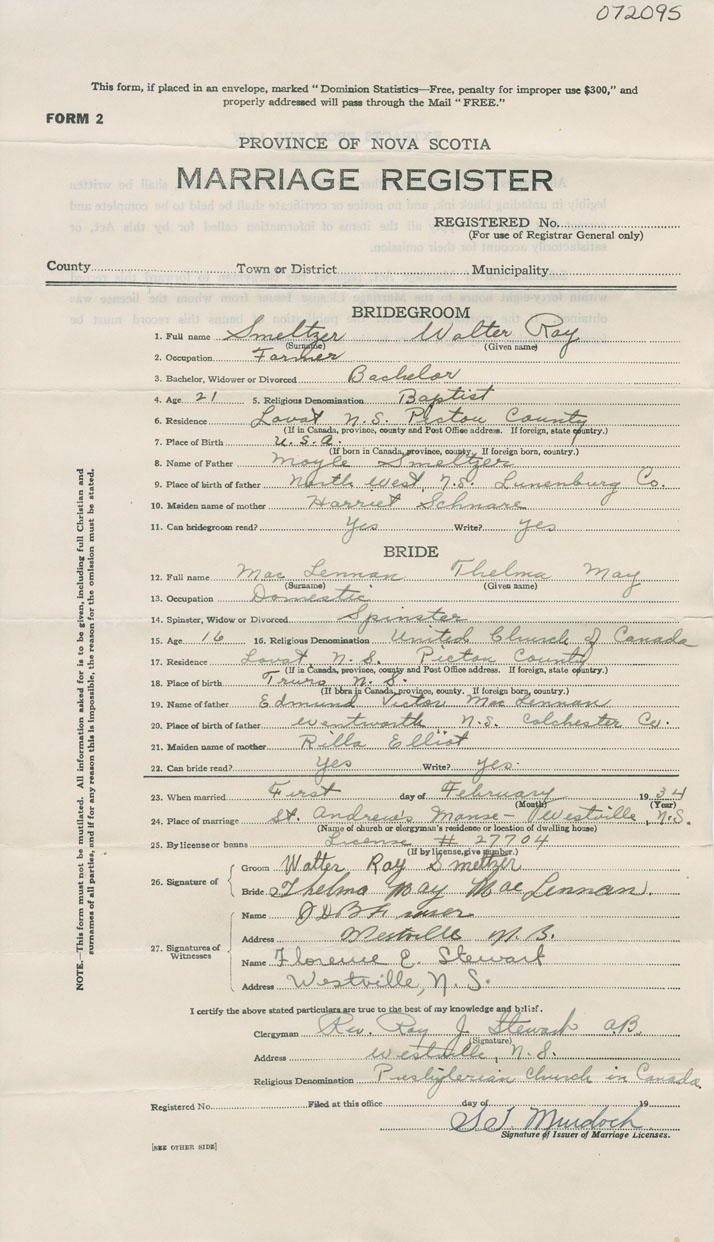 072095
This form, if placed in an envelope, marked "Dominion Statistics—Free, penalty for improper use $300," and
properly addressed will pass through the Mail "FREE."
FORM 2
PROVINCE OF NOVA SCOTIA
MARRIAGE REGISTER
REGISTERED No.
(For use of Registrar General only)
County Town or District Municipality
BRIDEGROOM
1. Full name Smeltzer Walter Ray
(Surname) (Given name)
2. Occupation Farmer
3. Bachelor, Widower or Divorced Bachelor
4. Age 21 5. Religious Denomination Baptist
6. Residence Lovat N.S. Pictou County
(If in Canada, province, county and Post Office address. If foreign, state country.)
7. Place of Birth U.S.A.
(If born in Canada, province, county. If foreign born, country.)
8. Name of Father Moyle Smeltzer
9. Place of birth of father North West, N.S. Lunenburg Co.
10. Maiden name of mother Harriet Schnare
11. Can bridegroom read? Yes Write? Yes
BRIDE
12. Full name Mac Lennan Thelma May
(Surname) (Given name)
13. Occupation Domestic
14. Spinster, Widow or Divorced Spinster
15. Age 16 16. Religious Denomination United Church of Canada
17. Residence Lovat N.S. Pictou County
(If in Canada, province, county and Post Office address. If foreign, state country.)
18. Place of birth Truro N.S.
(If born in Canada, province, county. If foreign born, country.)
19. Name of father Edmund Victor Mac Lennan
20. Place of birth of father Wentworth N.S. Colchester Co.
21. Maiden name of mother Rilla Elliot
22. Can bride read? Yes Write? Yes.
23. When married First day of February 1934
(Month) (Year)
24. Place of marriage St. Andrew's Manse – Westville, N.S.
(Name of church or clergyman's residence or location of dwelling house)
25. By license or banns License # 27704
(If by license, give number.)
26. Signature of Groom Walter Ray Smeltzer
Bride Thelma May Mac Lennan.
27. Signatures of Witnesses
Name
Address Westville N.S.
Name Florence E. Stewart
Address Westville, N.S.
I certify the above stated particulars are true to the best of my knowledge and belief.
Clergyman Rev. Roy J. Stewart A.B.
(Signature)
Address Westville, N.S.
Religious Denomination Presbyterian Church in Canada
Registered No. Filed at this office day of 19
Murdoch
Signature of Issuer of Marriage Licenses.
[SEE OTHER SIDE]
NOTE.—This form must not be mutilated. All information asked for is to be given, including full Christian and
surnames of all parties, and if for any reason this is impossible, the reason for the omission must be stated.